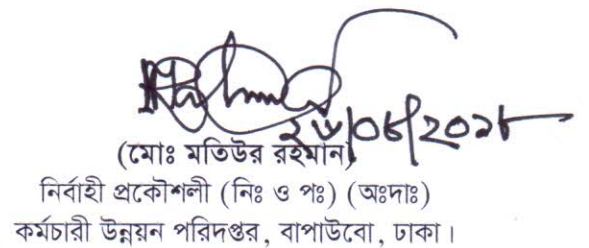 ২৬/০৮/২০১৮
(মোঃ মতিউর রহমান)
নির্বাহী প্রকৌশলী (নিঃ ও পঃ) (অঃদাঃ)
কর্মচারী উন্নয়ন পরিদপ্তর, বাপাউবো, ঢাকা।